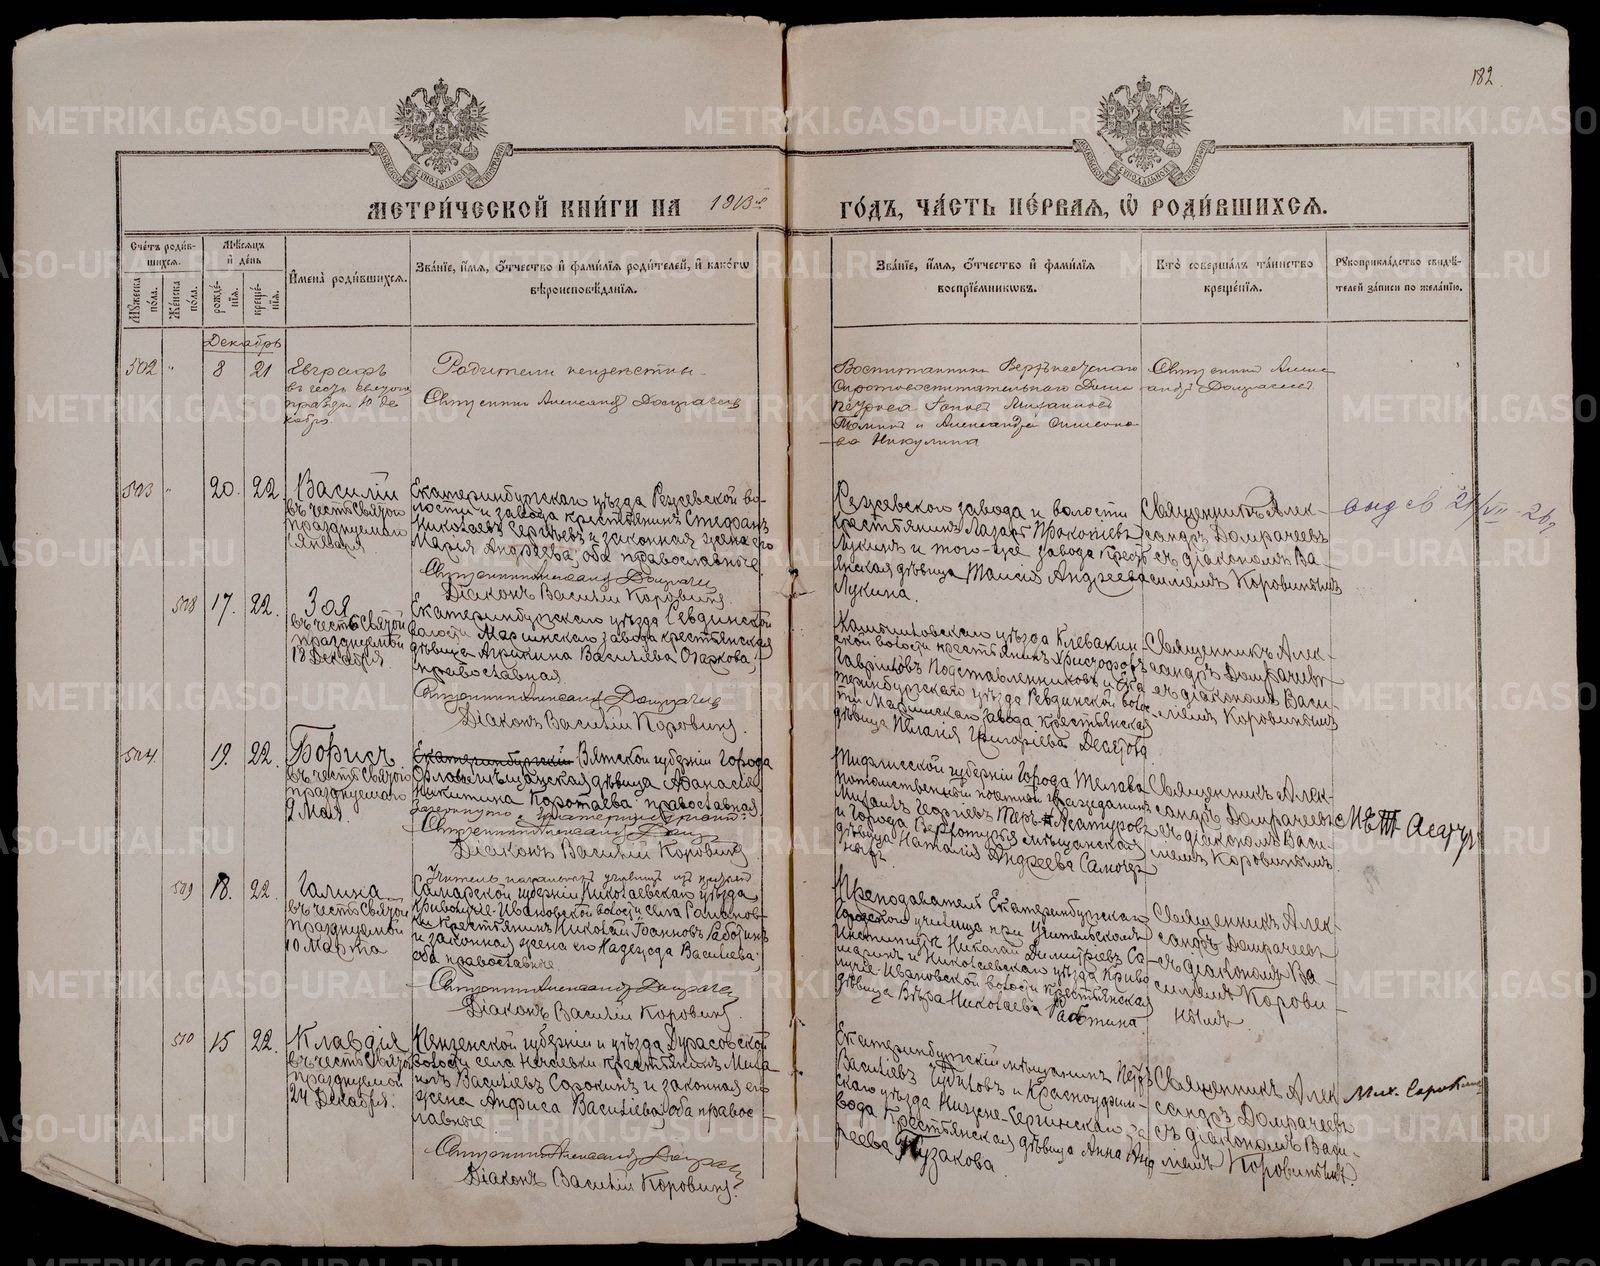 182.
МЕТРИЧЕСКОЙ КНИГИ НА 1913й ГОДЪ, ЧАСТЬ ПЕРВАЯ, Ѽ РОДИВШИХСЯ.
Счетъ родившихся.
Мужеска пола.
Женска пола.
Мѣсяцъ и день
рожденія.
крещенія.
Имена родившихся.
Званіе, имя, отчество и фамилія родителей, и какогѡ
вѣроисповѣданія.
Званіе, имя, отчество и фамилія
воспріемникѡвъ.
Кто совершалъ таинство
крещенія.
Рукоприкладство свидѣ-
телей записи по желанію.
Декабрь
502 " 8 21
Евграфъ
празди 10 де
кабря.
Родители неизвѣстны.
Священникъ Александръ Домрачевъ
Воспитанники
и Александра
Никулина
Священникъ Алекс
андръ Домрачевъ
503 " 20. 22.
Василій
въ честь Святого
празднуемаго
1 Января.
Екатеринбургскаго уѣзда Режевской во-
лости и завода крестьянинъ Стефанъ
Николаевъ Сергѣевъ и законная жена его
Марія Андреева, оба православные.
Священникъ Александръ Домрачевъ
Діаконъ Василій Коровинъ.
Режевского завода и волости
крестьянинъ Лазарь Прокопіевъ
Лукинъ и того-же завода крест
янская дѣвица Таисія Андреева
Лукина.
Священникъ Алек-
сандръ Домрачевъ
съ діакономъ Ва-
силіемъ Коровинымъ
508 17. 22.
Зоя
въ честь Святой
празднуемой
18 Декабря.
Екатеринбургскаго уѣзда Ревдинской
волости Маріинскаго завода крестьянская
дѣвица Агрипина Васильева Огаркова,
православная
Священникъ Александръ Домрачевъ
Діаконъ Василій Коровинъ.
Камышловскаго уѣзда Клевакин-
ской волости крестьянинъ Христофоръ
Гавриловъ Подставленниковъ и Ека
теринбургскаго уѣзда Ревдинской воло
сти Маріинскаго завода крестьянская
дѣвица Пелагія Григоріева Десятова
Священникъ Алек-
сандръ Домрачевъ
съ діакономъ Васи-
ліемъ Коровинымъ
504. 19. 22.
Борисъ
въ честь Святого
празднуемаго
2 Мая.
Екатеринбургскій Вятской губерніи города
Орлова мѣщанская дѣвица Афанасія
Никитина Коротаева православная
Священникъ Александръ Домр
Діаконъ Василій Коровинъ
Тифлисской губерніи города Телава
потомственный почетный гражданинъ
Михаилъ Георгіевъ Теръ-Асатуровъ
и города Верхотурья мѣщанская
дѣвица Наталія Андреева Самочер
ныхъ
Священникъ Алек-
сандръ Домрачевъ
съ діакономъ Васи-
ліемъ Коровинымъ.
509 18. 22.
Галина
въ честь Святой
празднуемой
10 Марта
Самарской губерніи Николаевскаго уѣзда
Криволуче-Ивановской волости села
крестьянинъ Николай Іоанновъ Работинъ
и законная жена его Надежда Васильева,
оба православные.
Священникъ Александръ Домраче
Діаконъ Василій Коровинъ.
Преподаватель Екатеринбургскаго
Городского училища при Учительскомъ
Институтѣ Николай Димитріевъ Са
маринъ и Николаевскаго уѣзда Криво
луче-Ивановской волости крестьянская
дѣвица Вѣра Николаева Работина
Священникъ Алек-
сандръ Домрачевъ
съ діакономъ Ва-
силіемъ Корови-
нымъ
510 15 22.
Клавдія
въ честь Святой
празднуемой
24 Декабря.
Пензенской губерніи и уѣзда Дурасовской
волости села Нечаевки крестьянинъ Миха
илъ Васильевъ Сорокинъ и законная его
жена Анфиса Васильева, оба право
славные
Священникъ Александръ Домрач
Діаконъ Василій Коровинъ.
Екатеринбургскій мѣщанинъ Петръ
Васильевъ и Красноуфим-
скаго уѣзда Нижне-Сергинскаго за
вода крестьянская дѣвица Анна Анд
реева Пузакова.
Священникъ Алек
сандръ Домрачевъ
съ діакономъ Васи-
ліемъ Коровинымъ.
Мих. Сорокинъ